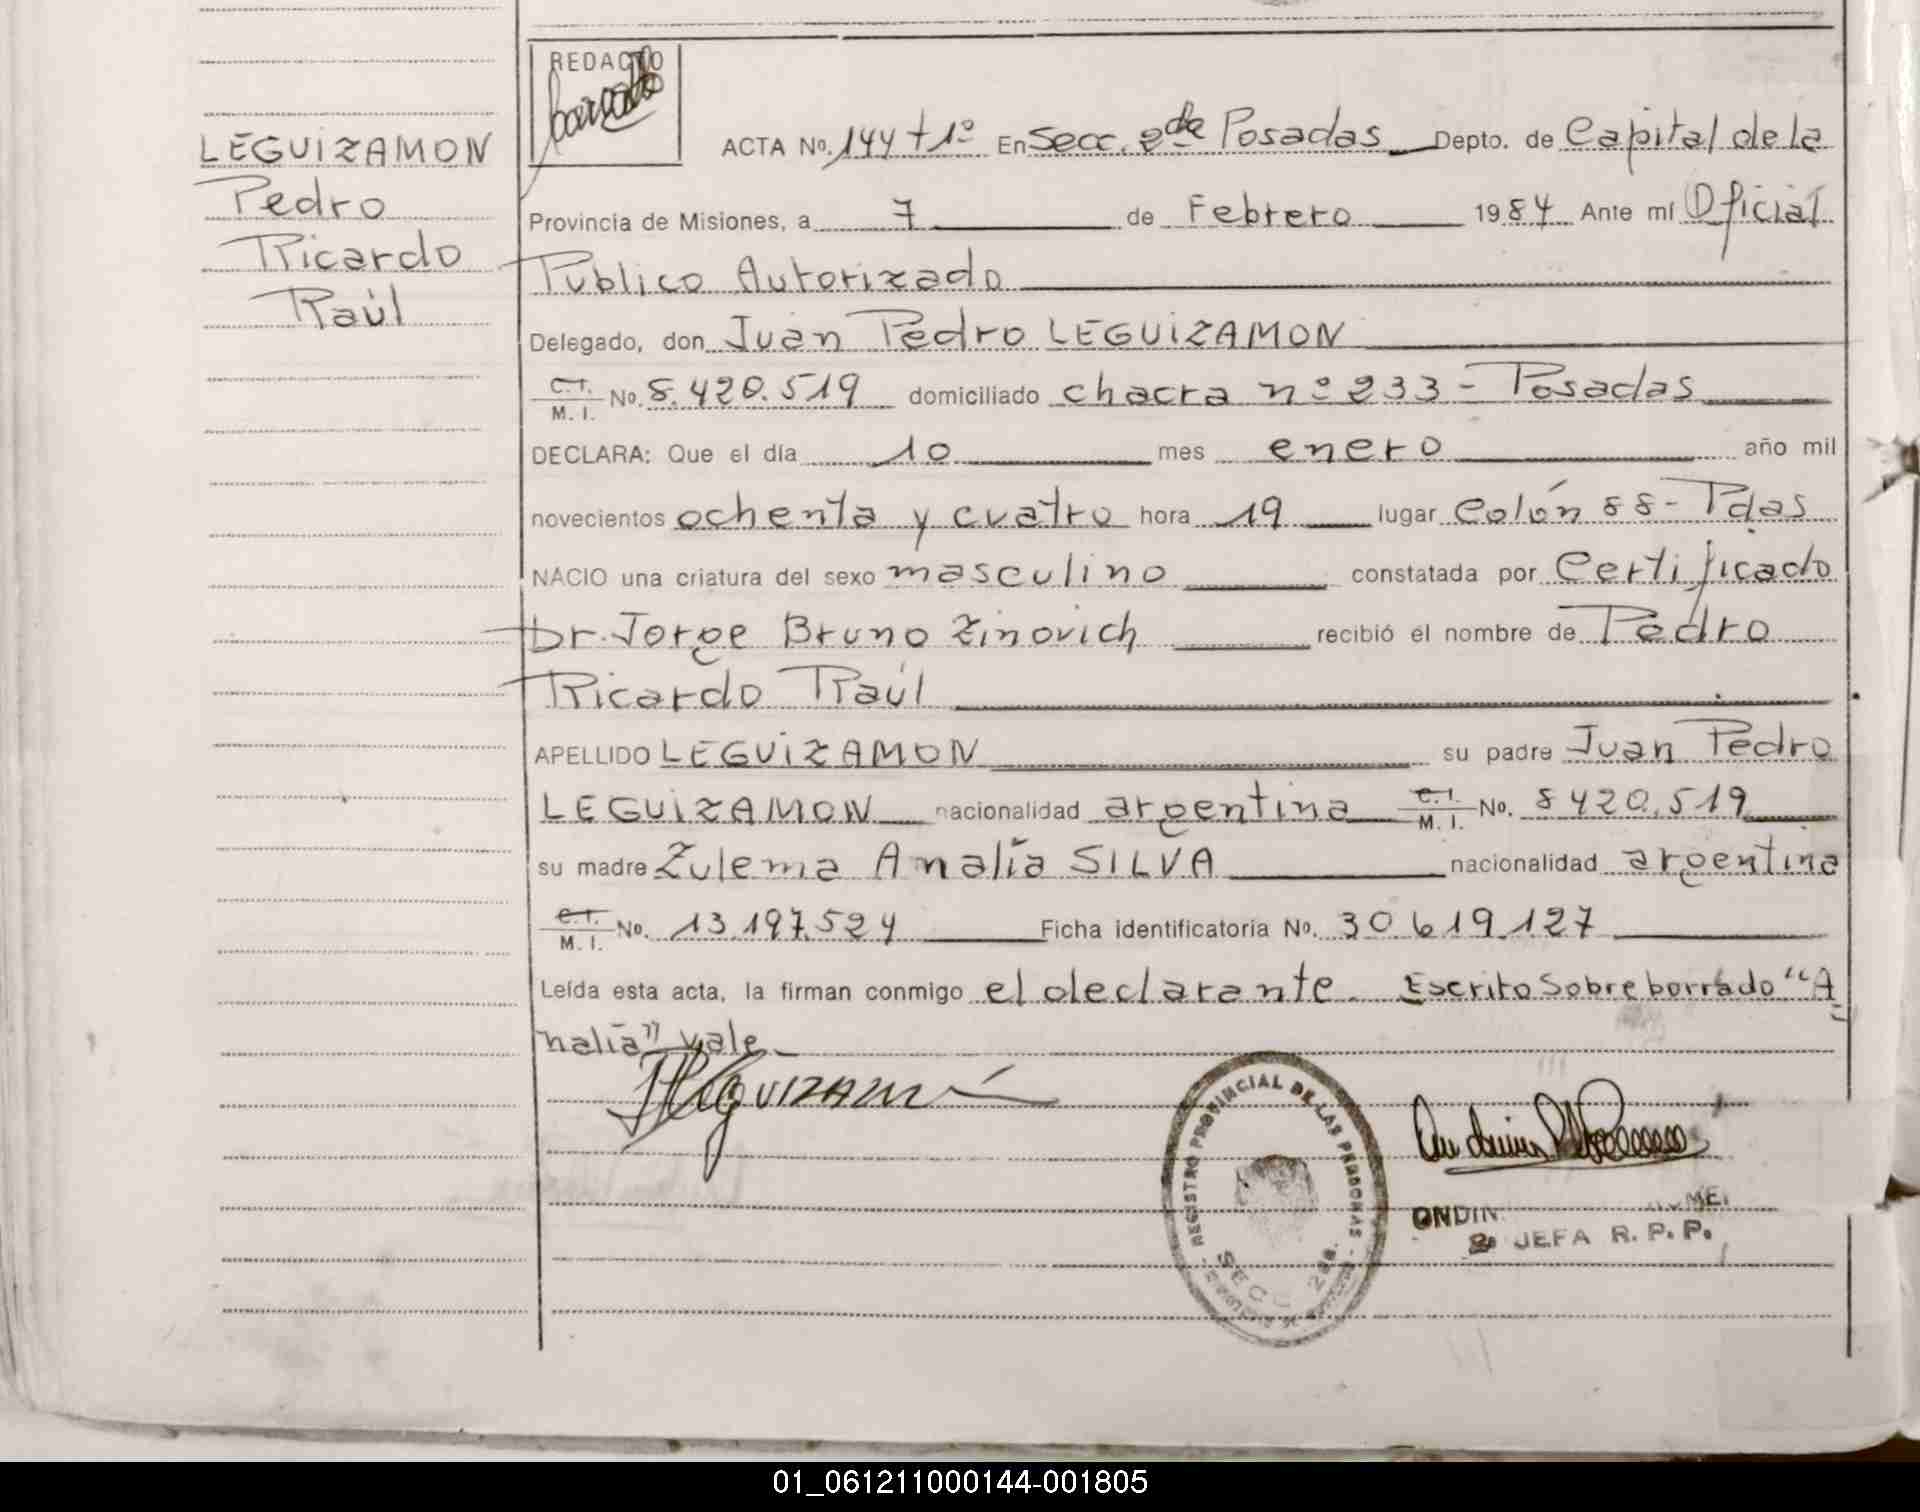 REDACTO
LEGUIZAMON
Pedro
Ricardo
Raúl
ACTA No. 144 t 1º En Secc. 2da Posadas Depto. de Capital de la
Provincia de Misiones, a 7 de Febrero 1984 Ante mí Oficial
Publico Autorizado
Delegado, don Juan Pedro LEGUIZAMON
C.I. M. I. No. 8.420.519 domiciliado chacra nº 233 - Posadas
DECLARA: Que el día 10 mes enero año mil
novecientos ochenta y cuatro hora 19 lugar Colón 88 - Pdas
NACIO una criatura del sexo masculino constatada por Certificado
Dr. Jorge Bruno Zinovich recibió el nombre de Pedro
Ricardo Raúl
APELLIDO LEGUIZAMON su padre Juan Pedro
LEGUIZAMON nacionalidad argentina C.I. M. I. No. 8420.519
su madre Zulema Analía SILVA nacionalidad argentina
C.I. M. I. No. 13.197.524 Ficha identificatoria No. 30.619.127
Leída esta acta, la firman conmigo el declarante. Escrito sobre borrado "A
nalía" vale
Leguizamón
REGISTRO PROVINCIAL DE LAS PERSONAS
SECC 2da.
JEFA R. P. P.
01_061211000144-001805